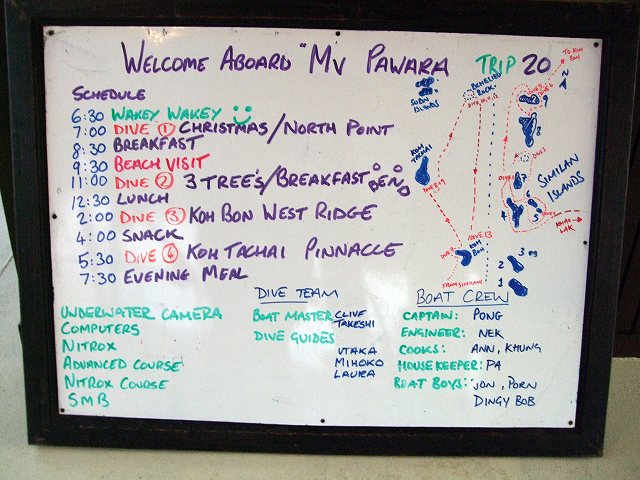 WELCOME ABOARD "MV PAWARA TRIP 20
SCHEDULE
6:30 WAKEY WAKEY
7:00 DIVE 1 CHRISTMAS/NORTH POINT
8:30 BREAKFAST
9:30 BEACH VISIT
11:00 DIVE 2 3 TREE'S/BREAKFAST BEND
12:30 LUNCH
2:00 DIVE 3 KOH BON WEST RIDGE
4:00 SNACK
5:30 DIVE 4 KOH TACHAI PINNACLE
7:30 EVENING MEAL
UNDERWATER CAMERA
COMPUTERS
NITROX
ADVANCED COURSE
NITROX COURSE
SMB
DIVE TEAM
BOAT MASTER CLIVE
TAKESHI
DIVE GUIDES
UTAKA
MIHOKO
LAURA
BOAT CREW
CAPTAIN: PONG
ENGINEER: NEK
COOKS: ANN, KHUNG
HOUSEKEEPER: PA
BOAT BOYS: JON, PORN
DINGY BOB
TO KOH
BON
N
RICHELIEU
ROCK
SURIN
ISLANDS
KOH
TACHAI
SIMILAN
ISLANDS
9
8
7
6
5
4
KHAO
LAK
KOH
BON
3
2
1
FROM SIMILANS